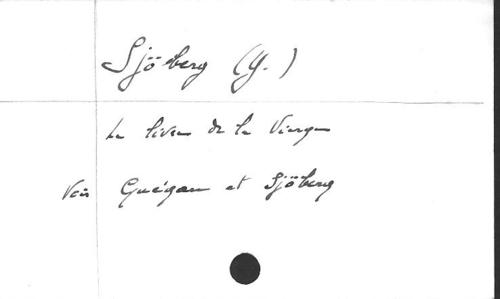 Sjöberg (Y.)
Le livre de la Vierge
Voir Guégan et Sjöberg